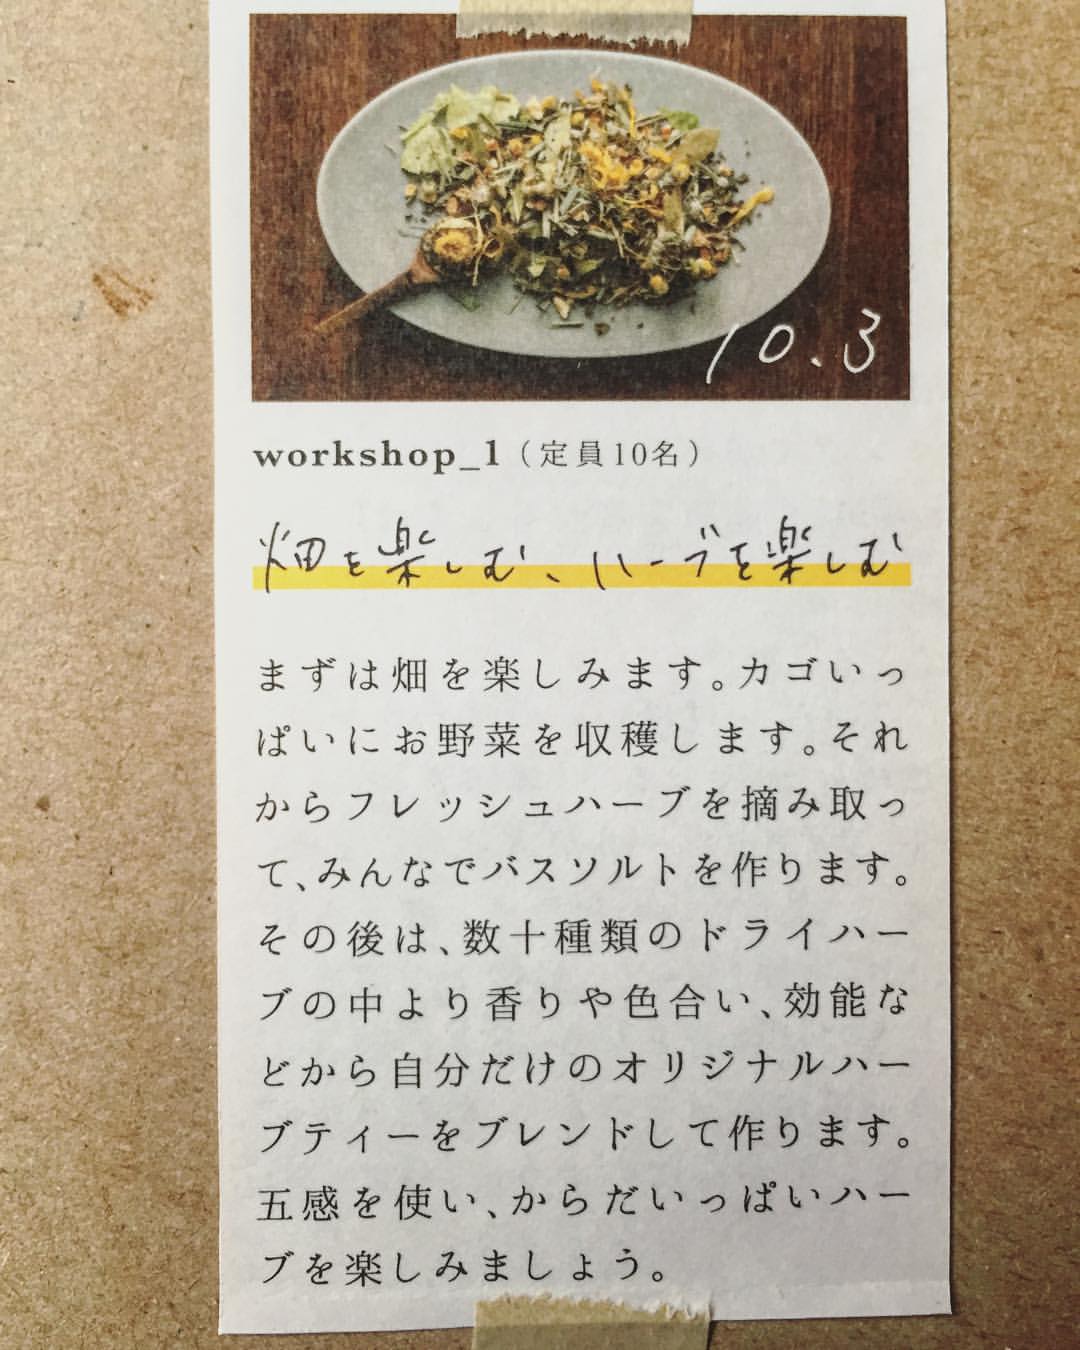 10.3
workshop_1（定員10名）
畑を楽しむ、ハーブを楽しむ
まずは畑を楽しみます。カゴいっ
ぱいにお野菜を収穫します。それ
からフレッシュハーブを摘み取っ
て、みんなでバスソルトを作ります。
その後は、数十種類のドライハー
ブの中より香りや色合い、効能な
どから自分だけのオリジナルハー
ブティーをブレンドして作ります。
五感を使い、からだいっぱいハー
ブを楽しみましょう。